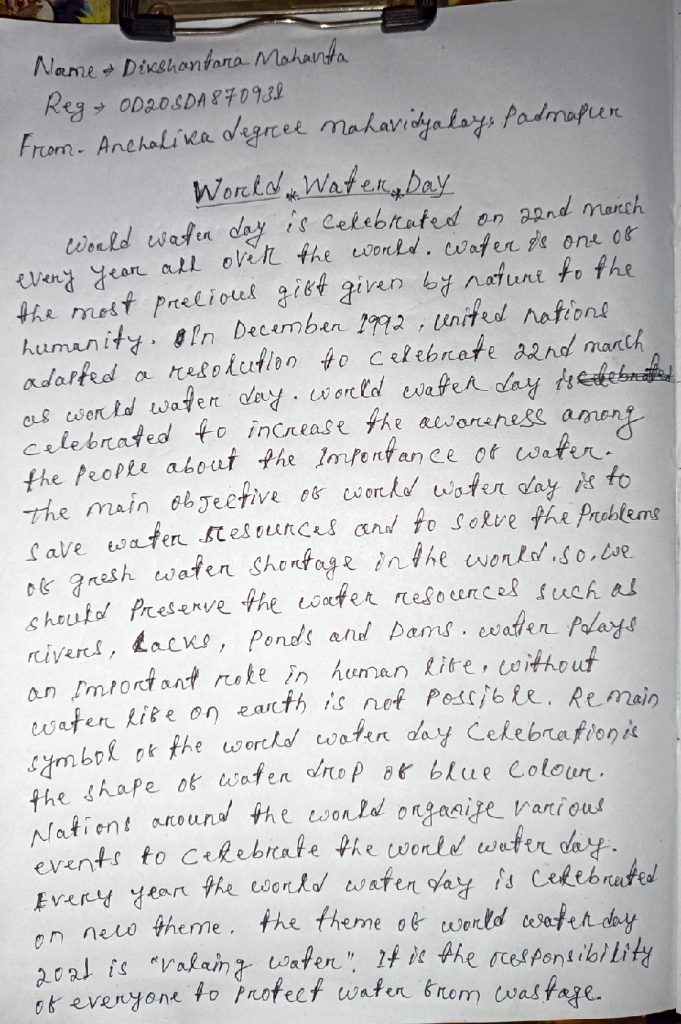 Name → Dikshantara Mahanta
Reg → OD20SDA870931
From - Anchalika degree mahavidyalaya, Padmapur
World * Water * Day
World water day is celebrated on 22nd march
every year all over the world. water is one of
the most precious gift given by nature to the
humanity. In December 1992, united nations
adapted a resolution to celebrate 22nd march
as world water day. world water day is celebrated
celebrated to increase the awareness among
the People about the Importance of water.
The main objective of world water day is to
save water resources and to solve the Problems
of fresh water shortage in the world. so, we
should Preserve the water resources such as
rivers, Lacks, Ponds and Dams. water Plays
an Important role in human life, without
water life on earth is not Possible. Re main
symbol of the world water day Celebration is
the shape of water drop of blue Colour.
Nations around the world organige various
events to Celebrate the world water day.
Every year the world water day is Celebrated
on new theme. the theme of world water day
2021 is "valaing water". It is the responsibility
of everyone to Protect water from wastage.